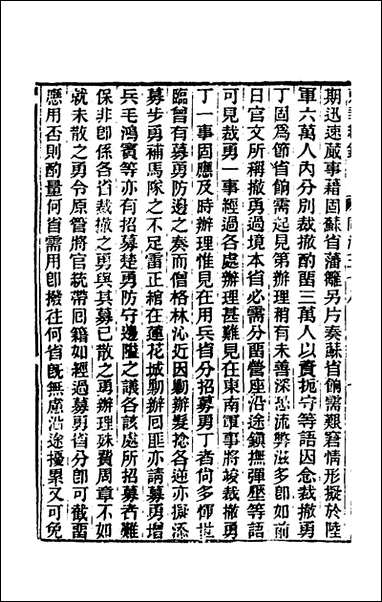 期迅速蕆事藉固蘇省藩籬另片奏蘇省餉需艱窘情形擬於陸
軍六萬人內分別裁撤酌留三萬人以資扼守等語因念裁撤勇
丁固爲節省餉需起見第辦理稍有未善深恐流弊滋多卽如前
日官文所稱撤勇過境本省必需分留營座沿途鎭撫彈壓等語
可見裁勇一事經過各處辦理甚難見在東南軍事將竣裁撤勇
丁一事固應及時辦理惟見在用兵省分招募勇丁者尙多惲世
臨曾有募勇防邊之奏而僧格林沁近因勦辦髮捻各逆亦擬添
募步勇補馬隊之不足雷正綰在蓮花城勦辦回匪亦請募勇增
兵毛鴻賓等亦有招募楚勇防守邊隘之議各該處所招募者難
保非卽係各省裁撤之勇與其募已散之勇辦理殊費周章不如
就未散之勇令原管將官統帶囘籍如經過募勇省分卽可截留
應用否則酌量何省需用卽撥往何省旣無慮沿途擾累又可免